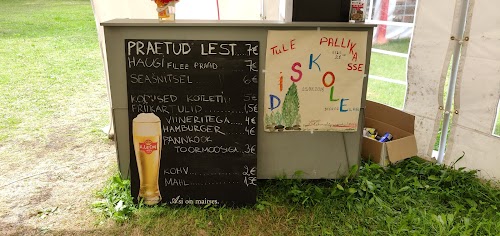 PRAETUD LEST...7€
HAUGI FILEE PRAAD 7€
SEAŠNITSEL 6€
KODUSED KOTLETID 5€
FRIIKARTULID.......1.5€
VIINERITEGA...4€
HAMBURGER...4€
PANNKOOK
TOORMOOSIGA...3€
KOHV..............2€
MAHL..............1.5€
A.LeCoq
Asi on maitses.
TULE PALLIKA
SSE
DiSKOLE